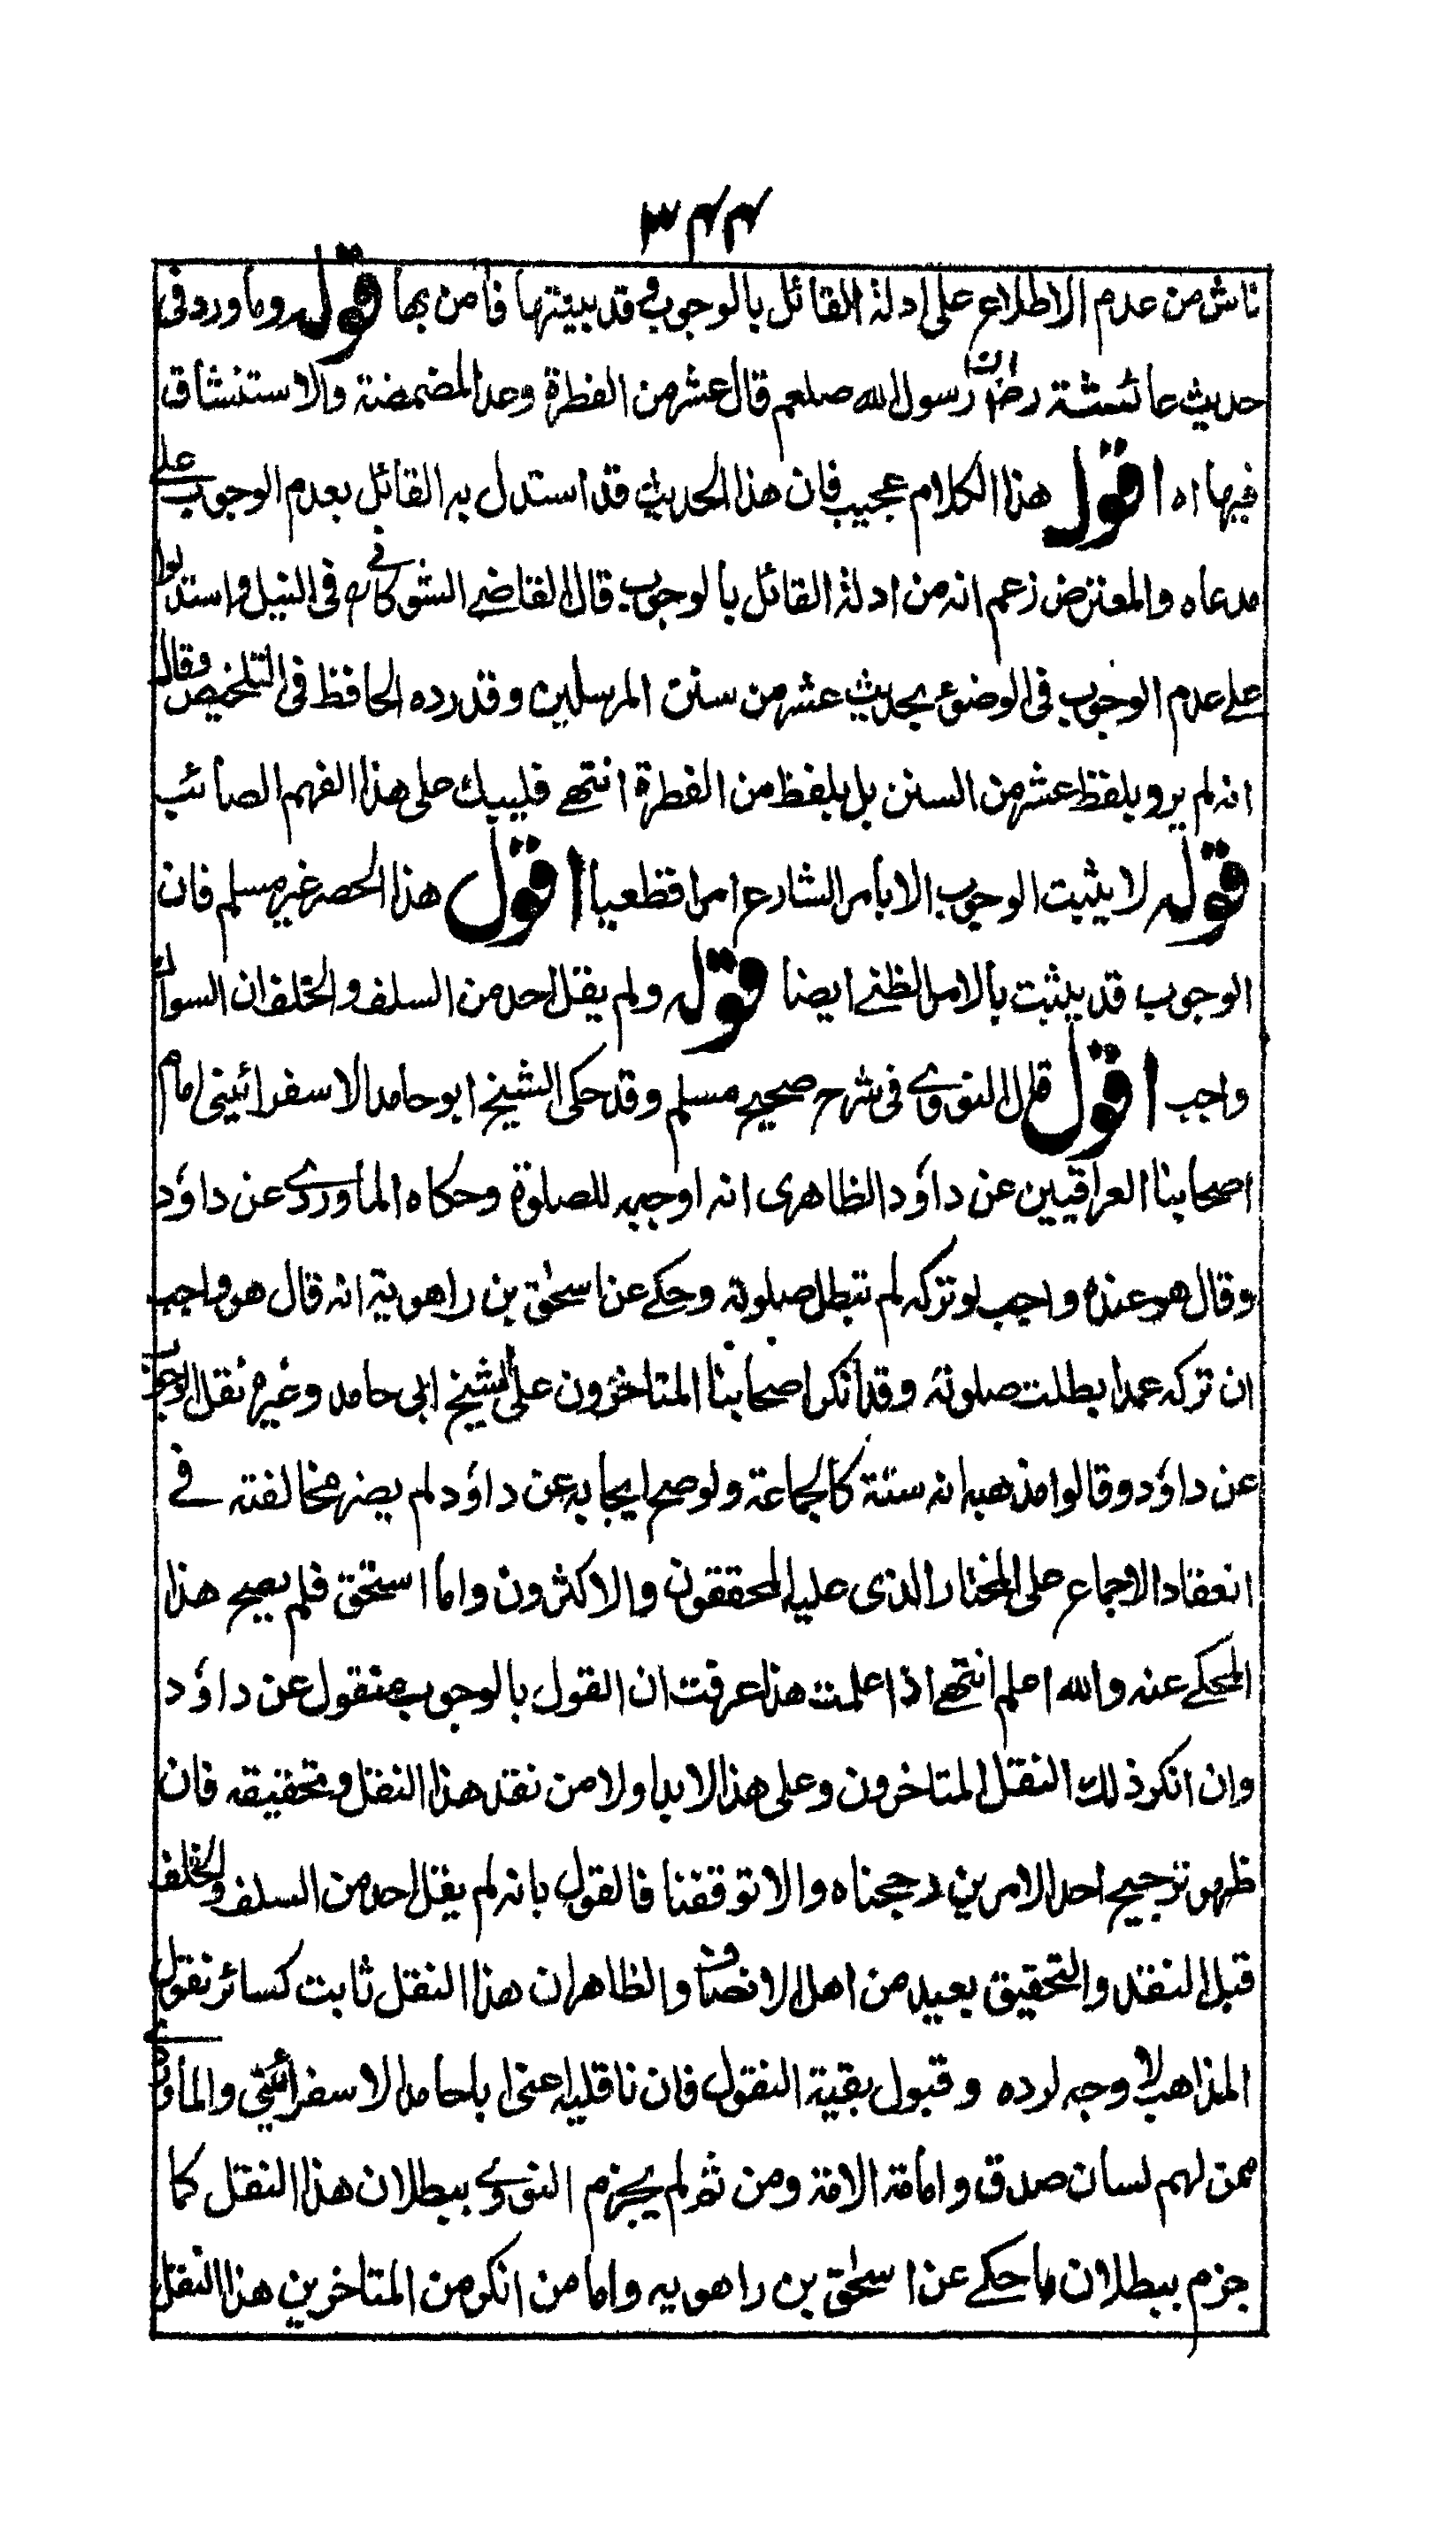 ۳۴۴
ناش من عدم الاطلاع على ادلة القائل بالوجوب وقد بينتها فامن بها قوله وما ورد فى
حديث عائشة رض ان رسول الله صلعم قال عشر من الفطرة وعد المضمضة والاستنشاق
فيها اه اقول هذا الكلام عجيب فان هذا الحديث قد استدل به القائل بعدم الوجوب على
مدعاه والمعترض زعم انه من ادلة القائل بالوجوب قال القاضے الشوكانے فى النيل واستدلوا
علے عدم الوجوب فى الوضوء بحديث عشر من سنن المرسلين وقد رده الحافظ فى التلخيص وقال
انه لم يرو بلفظ عشر من السنن بل بلفظ من الفطرة انتهے فليبك على هذا الفهم الصائب
قوله لا يثبت الوجوب الا بامر الشارع امرا قطعيا اقول هذا الحصر غير مسلم فان
الوجوب قد يثبت بالامر الظنے ايضا قوله ولم يقل احد من السلف والخلف ان السواك
واجب اقول قال النووے فى شرح صحيح مسلم وقد حكى الشيخ ابو حامد الاسفرائينى امام
اصحابنا العراقيين عن داؤد الظاهرى انه اوجبه للصلوة وحكاه الماوردے عن داؤد
وقال هو عنده واجب لو تركه لم تبطل صلوته وحكے عن اسحٰق بن راهويه انه قال هو واجب
ان تركه عمدا بطلت صلوته وقد انكر اصحابنا المتاخرون على الشيخ ابى حامد وغيره نقل الوجوب
عن داؤد وقالوا مذهبه انه سنة كالجماعة ولو صح ايجابه عن داؤد لم يضر مخالفته فے
انعقاد الاجماع على المختار الذى عليه المحققون والاكثرون واما اسحٰق فلم يصح هذا
المحكے عنه والله اعلم انتهے اذا علمت هذا عرفت ان القول بالوجوب منقول عن داؤد
وان انكر ذلك النقل المتاخرون وعلى هذا لا بد اولا من نقد هذا النقل وتحقيقه فان
ظهر ترجيح احد الامرين رجحناه والا توقفنا فالقول بانه لم يقل احد من السلف والخلف
قبل النقد والتحقيق بعيد من اهل الانصاف والظاهر ان هذا النقل ثابت كسائر نقول
المذاهب لا وجه لرده وقبول بقية النقول فان ناقليه اعنى ابا حامد الاسفرائينى والماوردے
ممن لهم لسان صدق وامامة الامة ومن ثم لم يجزم النووے ببطلان هذا النقل كما
جزم ببطلان ما حكے عن اسحٰق بن راهويه واما من انكر من المتاخرين هذا النقل